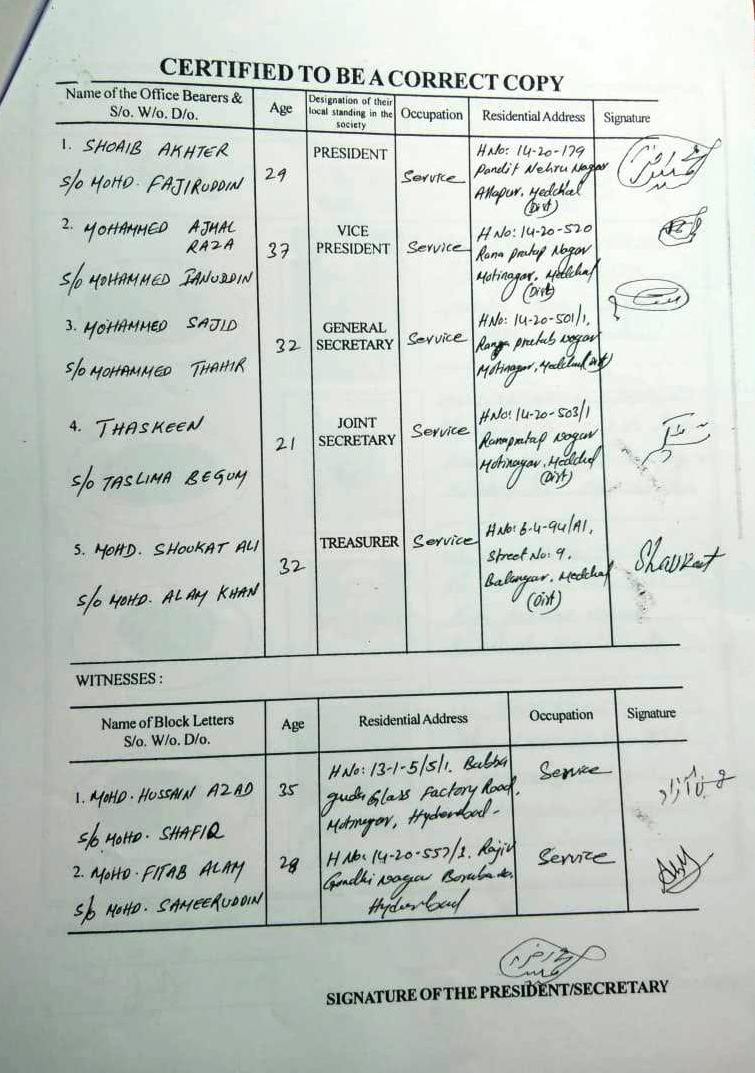 CERTIFIED TO BE A CORRECT COPY
Name of the Office Bearers & S/o. W/o. D/o. Age Designation of their local standing in the society Occupation Residential Address Signature
1. SHOAIB AKHTER
S/o MOHD. FAJIRUDDIN
29
PRESIDENT
Service
H No: 14-20-179
Pandit Nehru Nagar
Allapur, Medchal
(Dist)
2. MOHAMMED AJMAL
RAZA
S/o MOHAMMED
37
VICE
PRESIDENT
Service
H No: 14-20-520
Rana pratap Nagar
Motinagar, Medchal
(Dist)
3. MOHAMMED SAJID
S/o MOHAMMED THAHIR
32
GENERAL
SECRETARY
Service
HNo: 14-20-501/1,
Nagar
Motinagar, Medchal (Dist)
4. THASKEEN
S/o TASLIMA BEGUM
21
JOINT
SECRETARY
Service
HNo: 14-20-503/1
Ranapratap Nagar
Motinagar, Medchal
(Dist)
5. MOHD. SHOUKAT ALI
S/o MOHD. ALAM KHAN
32
TREASURER
Service
H No: 6-4-94/A1,
Street No: 9,
Balanagar, Medchal
(Dist)
Shaukat
WITNESSES :
Name of Block Letters S/o. W/o. D/o. Age Residential Address Occupation Signature
1. MOHD. HUSSAIN AZAD
S/o MOHD. SHAFIQ
35
H No: 13-1-5/5/1. Babba
guda Glass Factory Road,
Motinagar, Hyderabad-
Service
2. MOHD. FITAB ALAM
S/o MOHD. SAMEERUDDIN
28
H No: 14-20-557/1. Rajiv
Gandhi Nagar
Hyderabad
Service
SIGNATURE OF THE PRESIDENT/SECRETARY